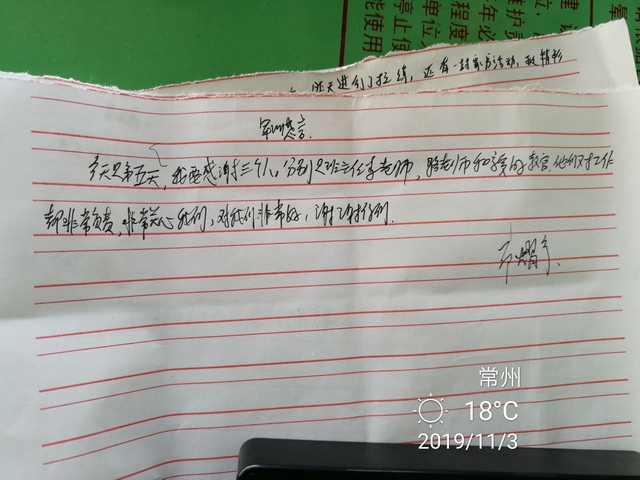 能使用
停止使
单位
程度
年必
维护
建设
昨天进行了拉练，还有一封家书活动，
军训感言.
今天是第五天，我要感谢三个人，分别是班主任李老师，骆老师和亲爱的教官.他们对工作
都非常负责，非常关心我们，对我们非常好，谢谢你们.
常州
18°C
2019/11/3